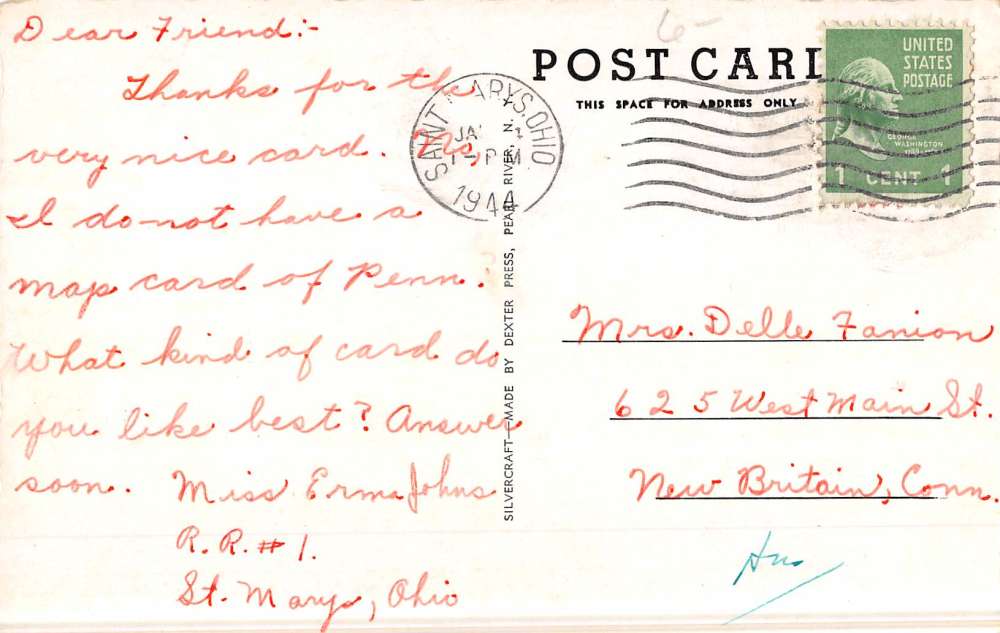 Dear Friend:-
Thanks for the
very nice card. No,
I do-not have a
map card of Penn.
What kind of card do
you like best? Answer
soon. Miss Erma Johns
R.R.#1.
St. Marys, Ohio
6-
POST CARD
THIS SPACE FOR ADDRESS ONLY
UNITED
STATES
POSTAGE
GEORGE
WASHINGTON
1 CENT 1
SAINT MARYS, OHIO
1-PM
1944
SILVERCRAFT—MADE BY DEXTER PRESS, PEARL RIVER, N.
Mrs. Delle Fanion
625 West Main St.
New Britain, Conn.